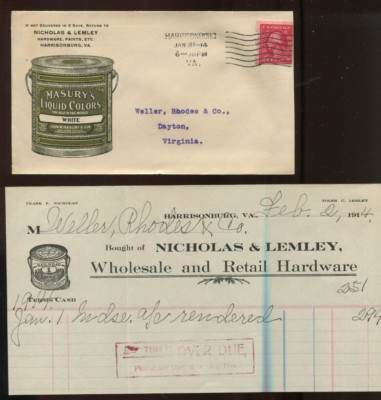 IF NOT DELIVERED IN 5 DAYS, RETURN TO
NICHOLAS & LEMLEY
HARDWARE, PAINTS, ETC.
HARRISONBURG, VA.
HARRISONBURG
JAN 31 14
6-PM
VA.
MASURY'S
LIQUID COLORS
WHITE
JOHN W. MASURY & SON
Weller, Rhodes & Co.,
Dayton,
Virginia.
FRANK E. NICHOLAS
HARRISONBURG, VA., Feb. 2, 1914
M Weller, Rhodes & Co.
Bought of NICHOLAS & LEMLEY,
Wholesale and Retail Hardware
TERMS CASH
251
1914
Jan. 1 Mdse. a/c rendered 294
THIS IS OVER DUE